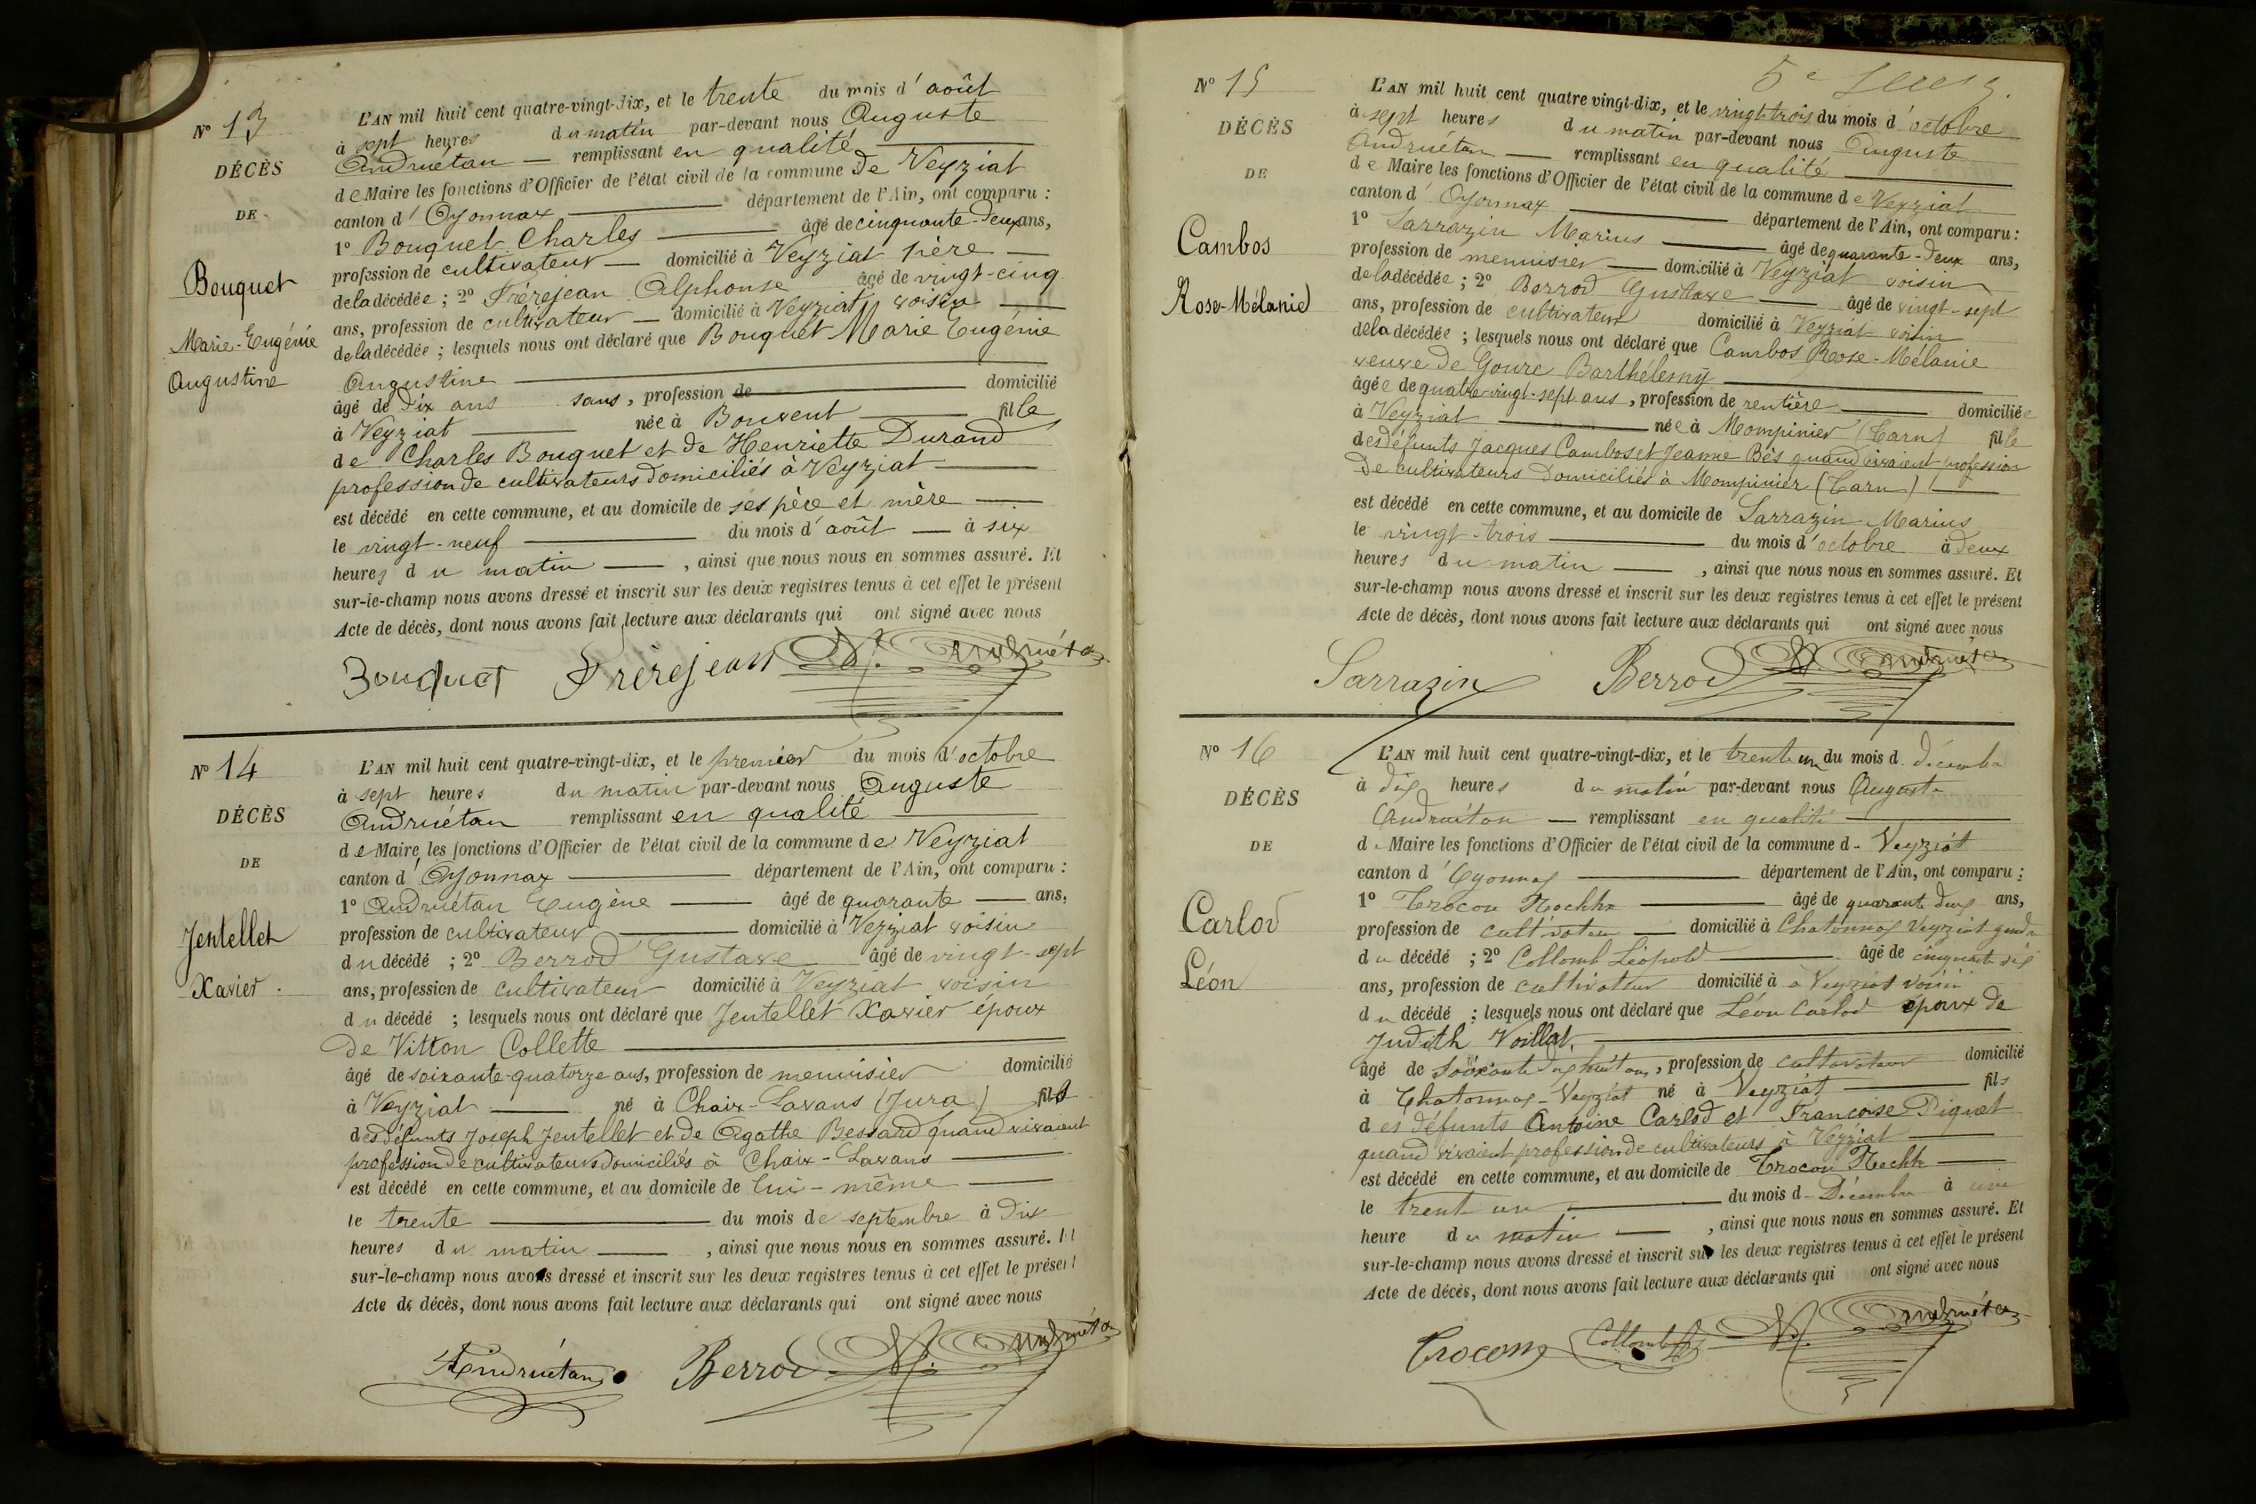 Nº 13
DÉCÈS
DE
Bouquet
Marie-Eugénie
Augustine
L'AN mil huit cent quatre-vingt-dix, et le trente du mois d'août
à sept heures du matin par-devant nous Auguste
Andruétan — remplissant en qualité
de Maire les fonctions d'Officier de l'état civil de la commune de Veyziat
canton d'Oyonnax département de l'Ain, ont comparu :
1º Bouquet Charles âgé de cinquante-deux ans,
profession de cultivateur — domicilié à Veyziat père
de la décédée ; 2º Frèrejean Alphonse âgé de vingt-cinq
ans, profession de cultivateur — domicilié à Veyziat voisin
de la décédée ; lesquels nous ont déclaré que Bouquet Marie Eugénie
Augustine
âgé de dix ans sans, profession de domicilié
à Veyziat née à Bouvent fille
de Charles Bouquet et de Henriette Durand
profession de cultivateurs domiciliés à Veyziat
est décédé en cette commune, et au domicile de ses père et mère
le vingt-neuf du mois d'août — à six
heures du matin — , ainsi que nous nous en sommes assuré. Et
sur-le-champ nous avons dressé et inscrit sur les deux registres tenus à cet effet le présent
Acte de décès, dont nous avons fait lecture aux déclarants qui ont signé avec nous
Bouquet Frèrejean Andruétan
Nº 14
DÉCÈS
DE
Jentellet
Xavier.
L'AN mil huit cent quatre-vingt-dix, et le premier du mois d'octobre
à sept heures du matin par-devant nous Auguste
Andruétan remplissant en qualité
de Maire les fonctions d'Officier de l'état civil de la commune de Veyziat
canton d'Oyonnax département de l'Ain, ont comparu :
1º Andruétan Eugène âgé de quarante — ans,
profession de cultivateur domicilié à Veyziat voisin
du décédé ; 2º Berrod Gustave âgé de vingt-sept
ans, profession de cultivateur domicilié à Veyziat voisin
du décédé ; lesquels nous ont déclaré que Jentellet Xavier époux
de Vitton Collette
âgé de soixante-quatorze ans, profession de menuisier domicilié
à Veyziat né à Choix-Lavans (Jura) fils
des défunts Joseph Jentellet et de Agathe Bessard quand vivaient
profession de cultivateurs domiciliés à Choix-Lavans
est décédé en cette commune, et au domicile de lui-même
le trente du mois de septembre à dix
heures du matin — , ainsi que nous nous en sommes assuré. Et
sur-le-champ nous avons dressé et inscrit sur les deux registres tenus à cet effet le présent
Acte de décès, dont nous avons fait lecture aux déclarants qui ont signé avec nous
Andruétan Berrod Andruétan
5e
Nº 15
DÉCÈS
DE
Cambos
Rose-Mélanie
L'AN mil huit cent quatre vingt-dix, et le vingt-trois du mois d'octobre
à sept heures du matin par-devant nous Auguste
Andruétan — remplissant en qualité
de Maire les fonctions d'Officier de l'état civil de la commune de Veyziat
canton d'Oyonnax département de l'Ain, ont comparu :
1º Sarrazin Marius âgé de quarante-deux ans,
profession de menuisier — domicilié à Veyziat voisin
de la décédée ; 2º Berrod Gustave — âgé de vingt-sept
ans, profession de cultivateur domicilié à Veyziat voisin
de la décédée ; lesquels nous ont déclaré que Cambos Rose-Mélanie
veuve de Gourc Barthélemy
âgée de quatre vingt-sept ans, profession de rentière domiciliée
à Veyziat née à Mompinier (Tarn) fille
des défunts Jacques Cambos et Jeanne Bès quand vivaient profession
de cultivateurs domiciliés à Mompinier (Tarn)
est décédé en cette commune, et au domicile de Sarrazin Marius
le vingt-trois du mois d'octobre à deux
heures du matin — , ainsi que nous nous en sommes assuré. Et
sur-le-champ nous avons dressé et inscrit sur les deux registres tenus à cet effet le présent
Acte de décès, dont nous avons fait lecture aux déclarants qui ont signé avec nous
Sarrazin Berrod Andruétan
Nº 16
DÉCÈS
DE
Carlod
Léon
L'AN mil huit cent quatre-vingt-dix, et le trente un du mois d. décembre
à dix heures du matin par-devant nous Auguste
Andruétan — remplissant en qualité
de Maire les fonctions d'Officier de l'état civil de la commune de Veyziat
canton d'Oyonnax département de l'Ain, ont comparu :
1º Trocon âgé de quarante deux ans,
profession de cultivateur — domicilié à Chatonnax Veyziat gendre
du décédé ; 2º Collomb Léopold âgé de cinquante dix
ans, profession de cultivateur domicilié à à Veyziat voisin
du décédé ; lesquels nous ont déclaré que Léon Carlod époux de
Judith Voillat.
âgé de soixante dix huit ans, profession de cultivateur domicilié
à Chatonnax-Veyziat né à Veyziat fils
des défunts Antoine Carlod et Françoise Piquet
quand vivaient profession de cultivateurs à Veyziat
est décédé en cette commune, et au domicile de Trocon
le trent un du mois de Décembre à une
heure du matin — , ainsi que nous nous en sommes assuré. Et
sur-le-champ nous avons dressé et inscrit sur les deux registres tenus à cet effet le présent
Acte de décès, dont nous avons fait lecture aux déclarants qui ont signé avec nous
Trocon Collomb Andruétan